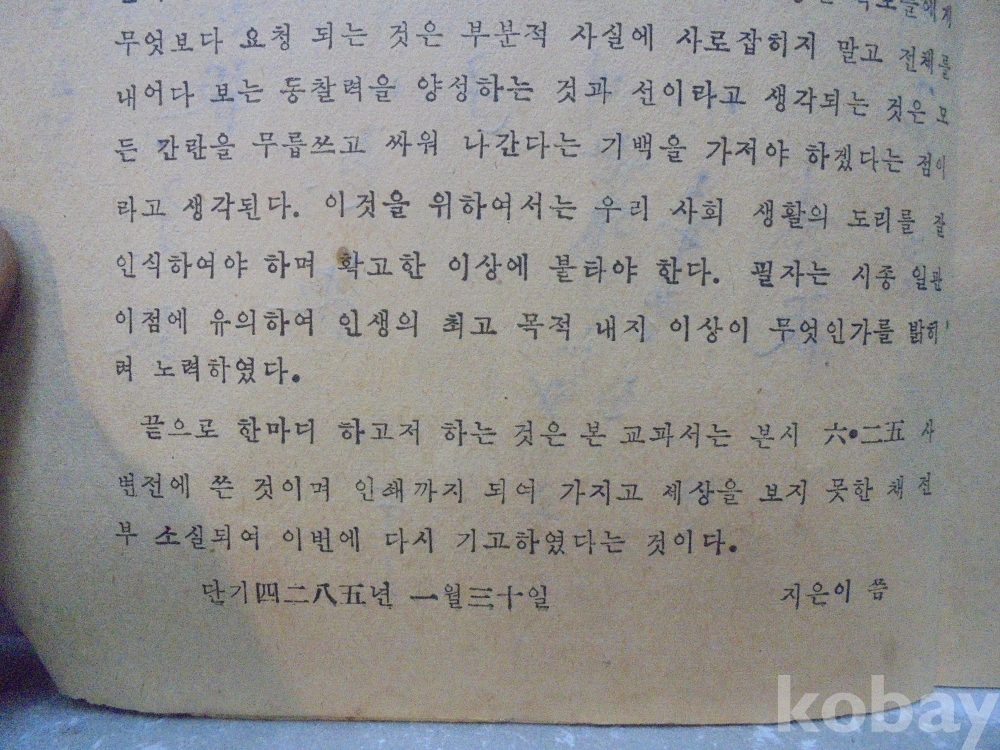 무엇보다 요청 되는 것은 부분적 사실에 사로잡히지 말고 전체를
내어다 보는 동찰력을 양성하는 것과 선이라고 생각되는 것은 모
든 간란을 무릅쓰고 싸워 나간다는 기백을 가저야 하겠다는 점이
라고 생각된다. 이것을 위하여서는 우리 사회 생활의 도리를 잘
인식하여야 하며 확고한 이상에 불타야 한다. 필자는 시종 일관
이점에 유의하여 인생의 최고 목적 내지 이상이 무엇인가를 밝히
려 노력하였다.
끝으로 한마디 하고저 하는 것은 본 교과서는 본시 六•二五 사
변전에 쓴 것이며 인쇄까지 되여 가지고 세상을 보지 못한 채 전
부 소실되여 이번에 다시 기고하였다는 것이다.
단기四二八五년 一월三十일 지은이 씀
kobay